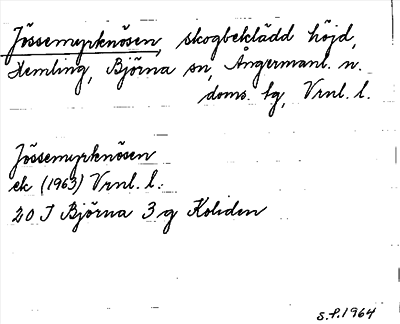 Jössemyrknösen, skogbeklädd höjd,
Hemling, Björna sn, Ångermanl. n.
doms. fg, Vrnl. l.
Jössemyrknösen
ek (1963) Vrnl. l.:
20 J Björna 3 g Koliden
S.f. 1964